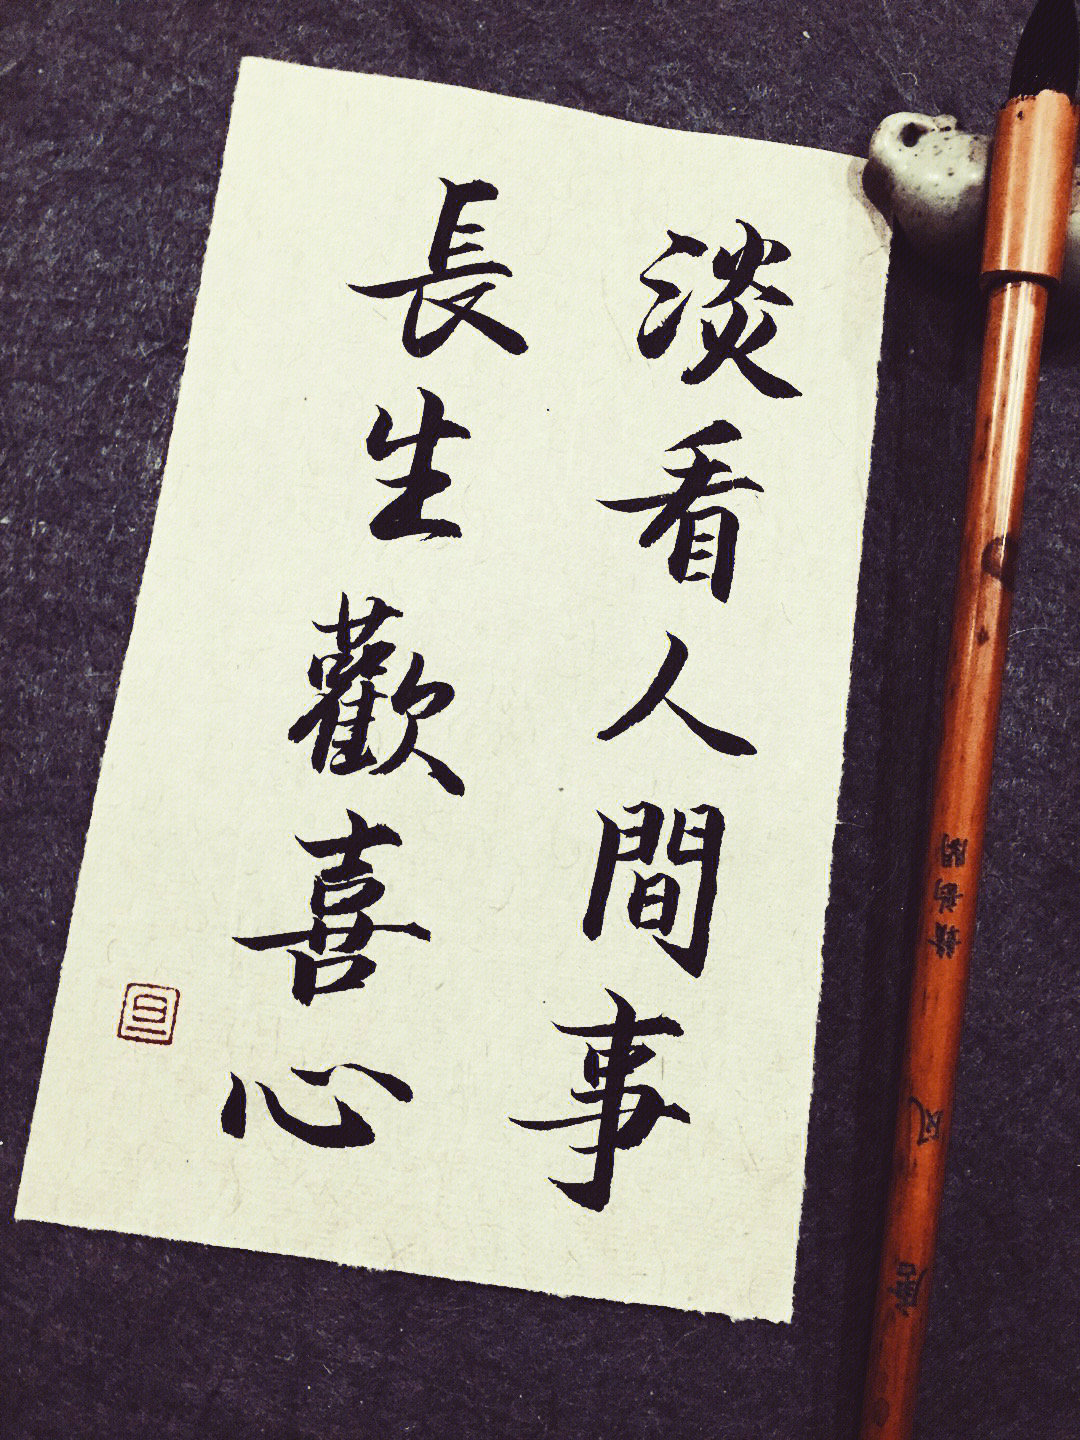 淡看人間事
長生歡喜心